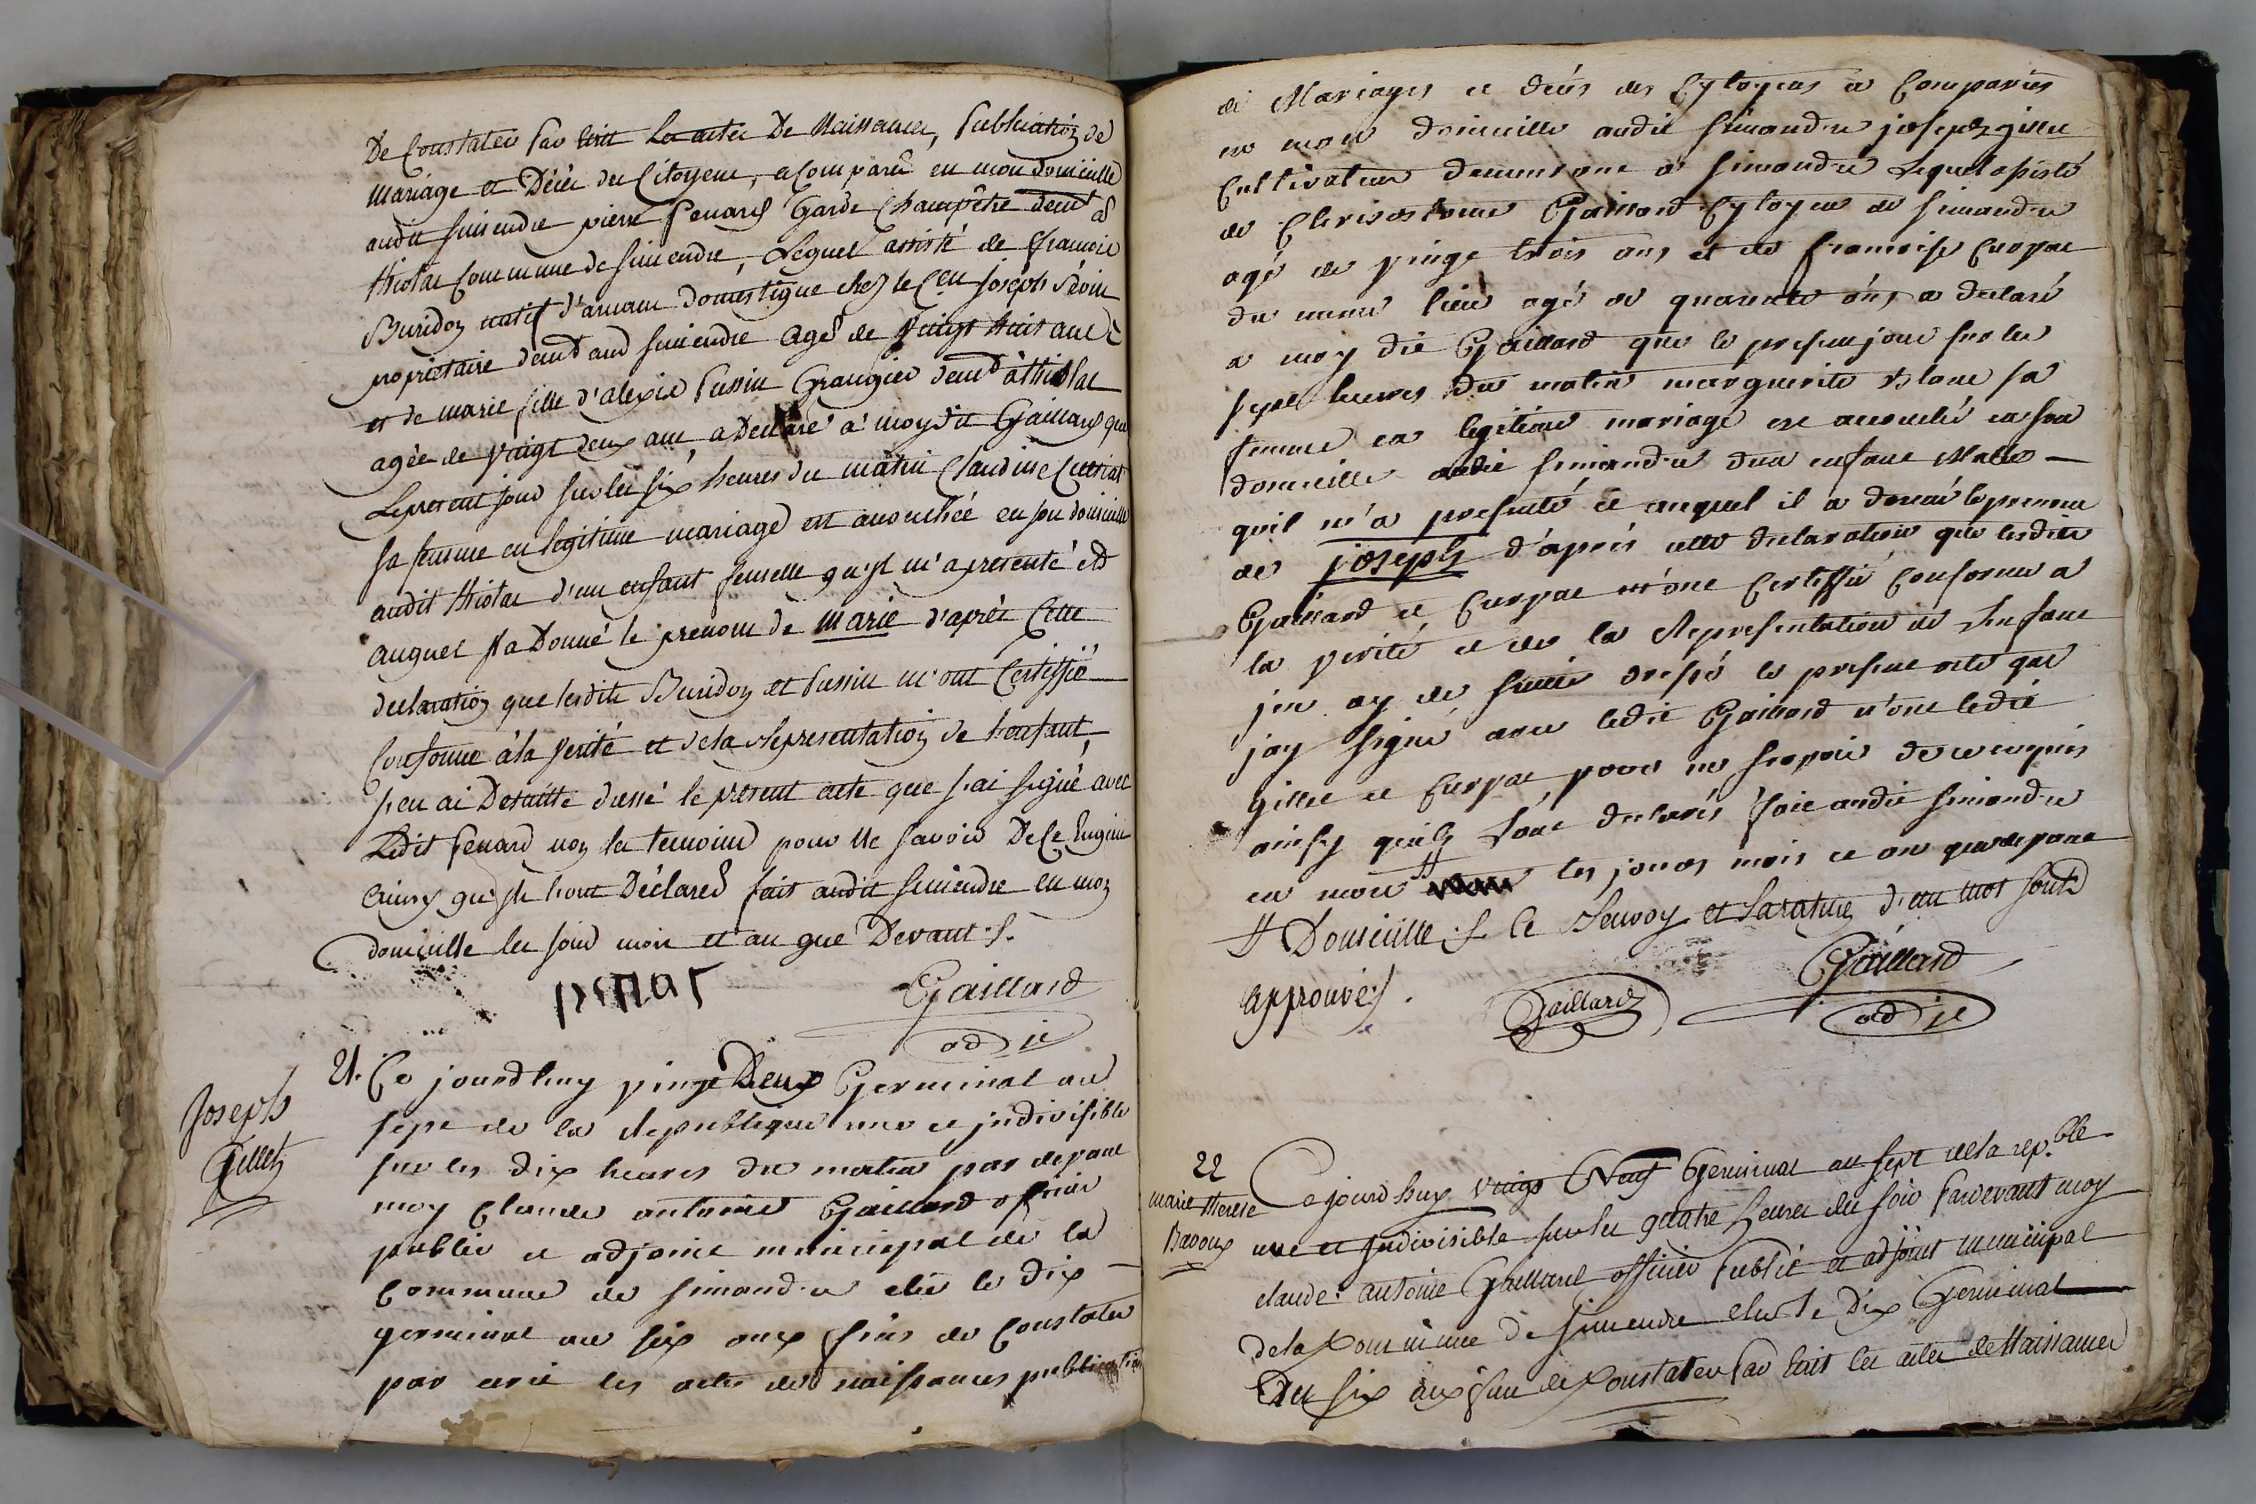 De Constater par Ecrit Les actes De Naissances, publication de
Mariage et Décès des Citoyens, a Comparû en mon domicille
audit simendre pierre penard Garde Champêtre demt a
thiolat Commune de simendre, Lequel assisté de francois
Buridon natif d'arnans domestique chez le Cen joseph
propriétaire demt aud simendre agé de vingt huit ans
et de marie fille d'alexis pussin Grangier demt à thiolat
agée de vingt deux ans, a Declaré à moy dit Gaillard que
Le present jour sur les six heures du matin Claudine Curtiat
sa femme en legitime mariage est accouchée en son domicille
audit thiolat d'un enfant femelle qu'il m'a presenté et
auquel il a Donné le prenom de marie d'après Cette
declaration que lesdits Buridon et pussin m'ont Certiffié
Conforme à la verité et de la Representation de L'enfant,
j'en ai De suitte dressé le present acte que j'ai signé avec
Ledit penard non les temoins pour ne savoir De Ce Enquis
ainsy qu'ils L'ont Déclarés fait audit simendre en mon
domicille les jour mois et an que Devant ./.
penar Gaillard
adjt
Joseph
Gillet
21. Ce jourdhuy vingt Deux Germinal an
sept de la Republique une et jndivisible
sur les dix heures du matin par devant
moy Claude antoine Gaillard officier
public et adjoint municipal de la
Commune de simandre elû le dix
germinal an six aux fins de Constater
par ecrit les actes de naissances publication
de Mariages et décés des Cytoyens a Comparûs
en mon domicille audit simandre joseph gillet
Cultivateur demeurant a simandre Lequel assisté
de Clirisostome Gaillard Cytoyen de simandre
agé de vingt trois ans et de francoise Curvat
du meme lieu agé de quarante ans, a declaré
a moy dit Gaillard que le present jour sur les
sept heures du matin marguerite blanc sa
femme en legitime mariage est accouchée en son
domicille audit simandre d'un enfant Male
qu'il m'a presenté et auquel il a donné le prenom
de joseph d'aprés cette declaration que lesdits
Gaillard et Curvat m'ont Certiffié Conforme a
la verité et de la Representation de L'enfant
j'en ay de suitte dressé le present acte que
j'ay signé avec ledit Gaillard n'ont ledit
gillet et Curvat, pour ne scavoir de ce enquis
ainsy qu'ils L'ont declarés fait audit simandre
en mon # les jours mois et an que devant
# Domicille ./. le Renvoy et la rature d'un mot sont
approuvé ./. Gaillard Gaillard
adjt
22
marie therese
Bavoux
Ce jourd'huy vingt Neuf Germinal an sept de la rep.ble
une et jndivisible sur les quatre heures du soir pardevant moy
claude antoine Gaillard officier public et adjoint municipal
de la Commune de simendre elu le Dix Germinal
An six aux fins de Constater par Ecrit les actes de Naissances